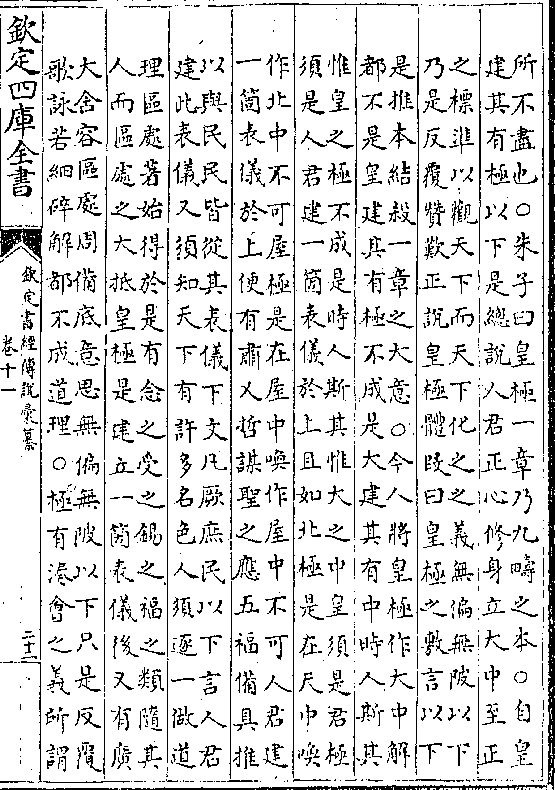 所不盡也○朱子曰皇極一章乃九疇之本○自皇
建其有極以下是總說人君正心修身立大中至正
之標準以觀天下而天下化之之義無偏無陂以下
乃是反覆贊歎正說皇極體段曰皇極之敷言以下
是推本結殺一章之大意○今人將皇極作大中解
都不是皇建其有極不成是大建其有中時人斯其
惟皇之極不成是時人斯其惟大之中皇須是君極
須是人君建一箇表儀於上且如北極是在天中喚
作北中不可屋極是在屋中喚作屋中不可人君建
一箇表儀於上便有肅乂哲謀聖之應五福備具推
以與民民皆從其表儀下文凡厥庶民以下言人君
建此表儀又須知天下有許多名色人須逐一做道
理區處著始得於是有念之受之錫之福之類隨其
人而區處之大抵皇極是建立一箇表儀後又有廣
大含容區處周備底意思無偏無陂以下只是反覆
歌詠若細碎解都不成道理○極有湊會之義所謂
欽定四庫全書
欽定書經傳說彙纂
卷十一